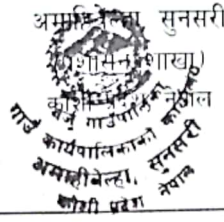 अमाहिबेल्हा, सुनसरी
(प्रशासन शाखा)
कोशी प्रदेश, नेपाल
गाउँपालिका
गाउँ कार्यपालिकाको
अमाहीबेल्हा, सुनसरी
कोशी प्रदेश नेपाल